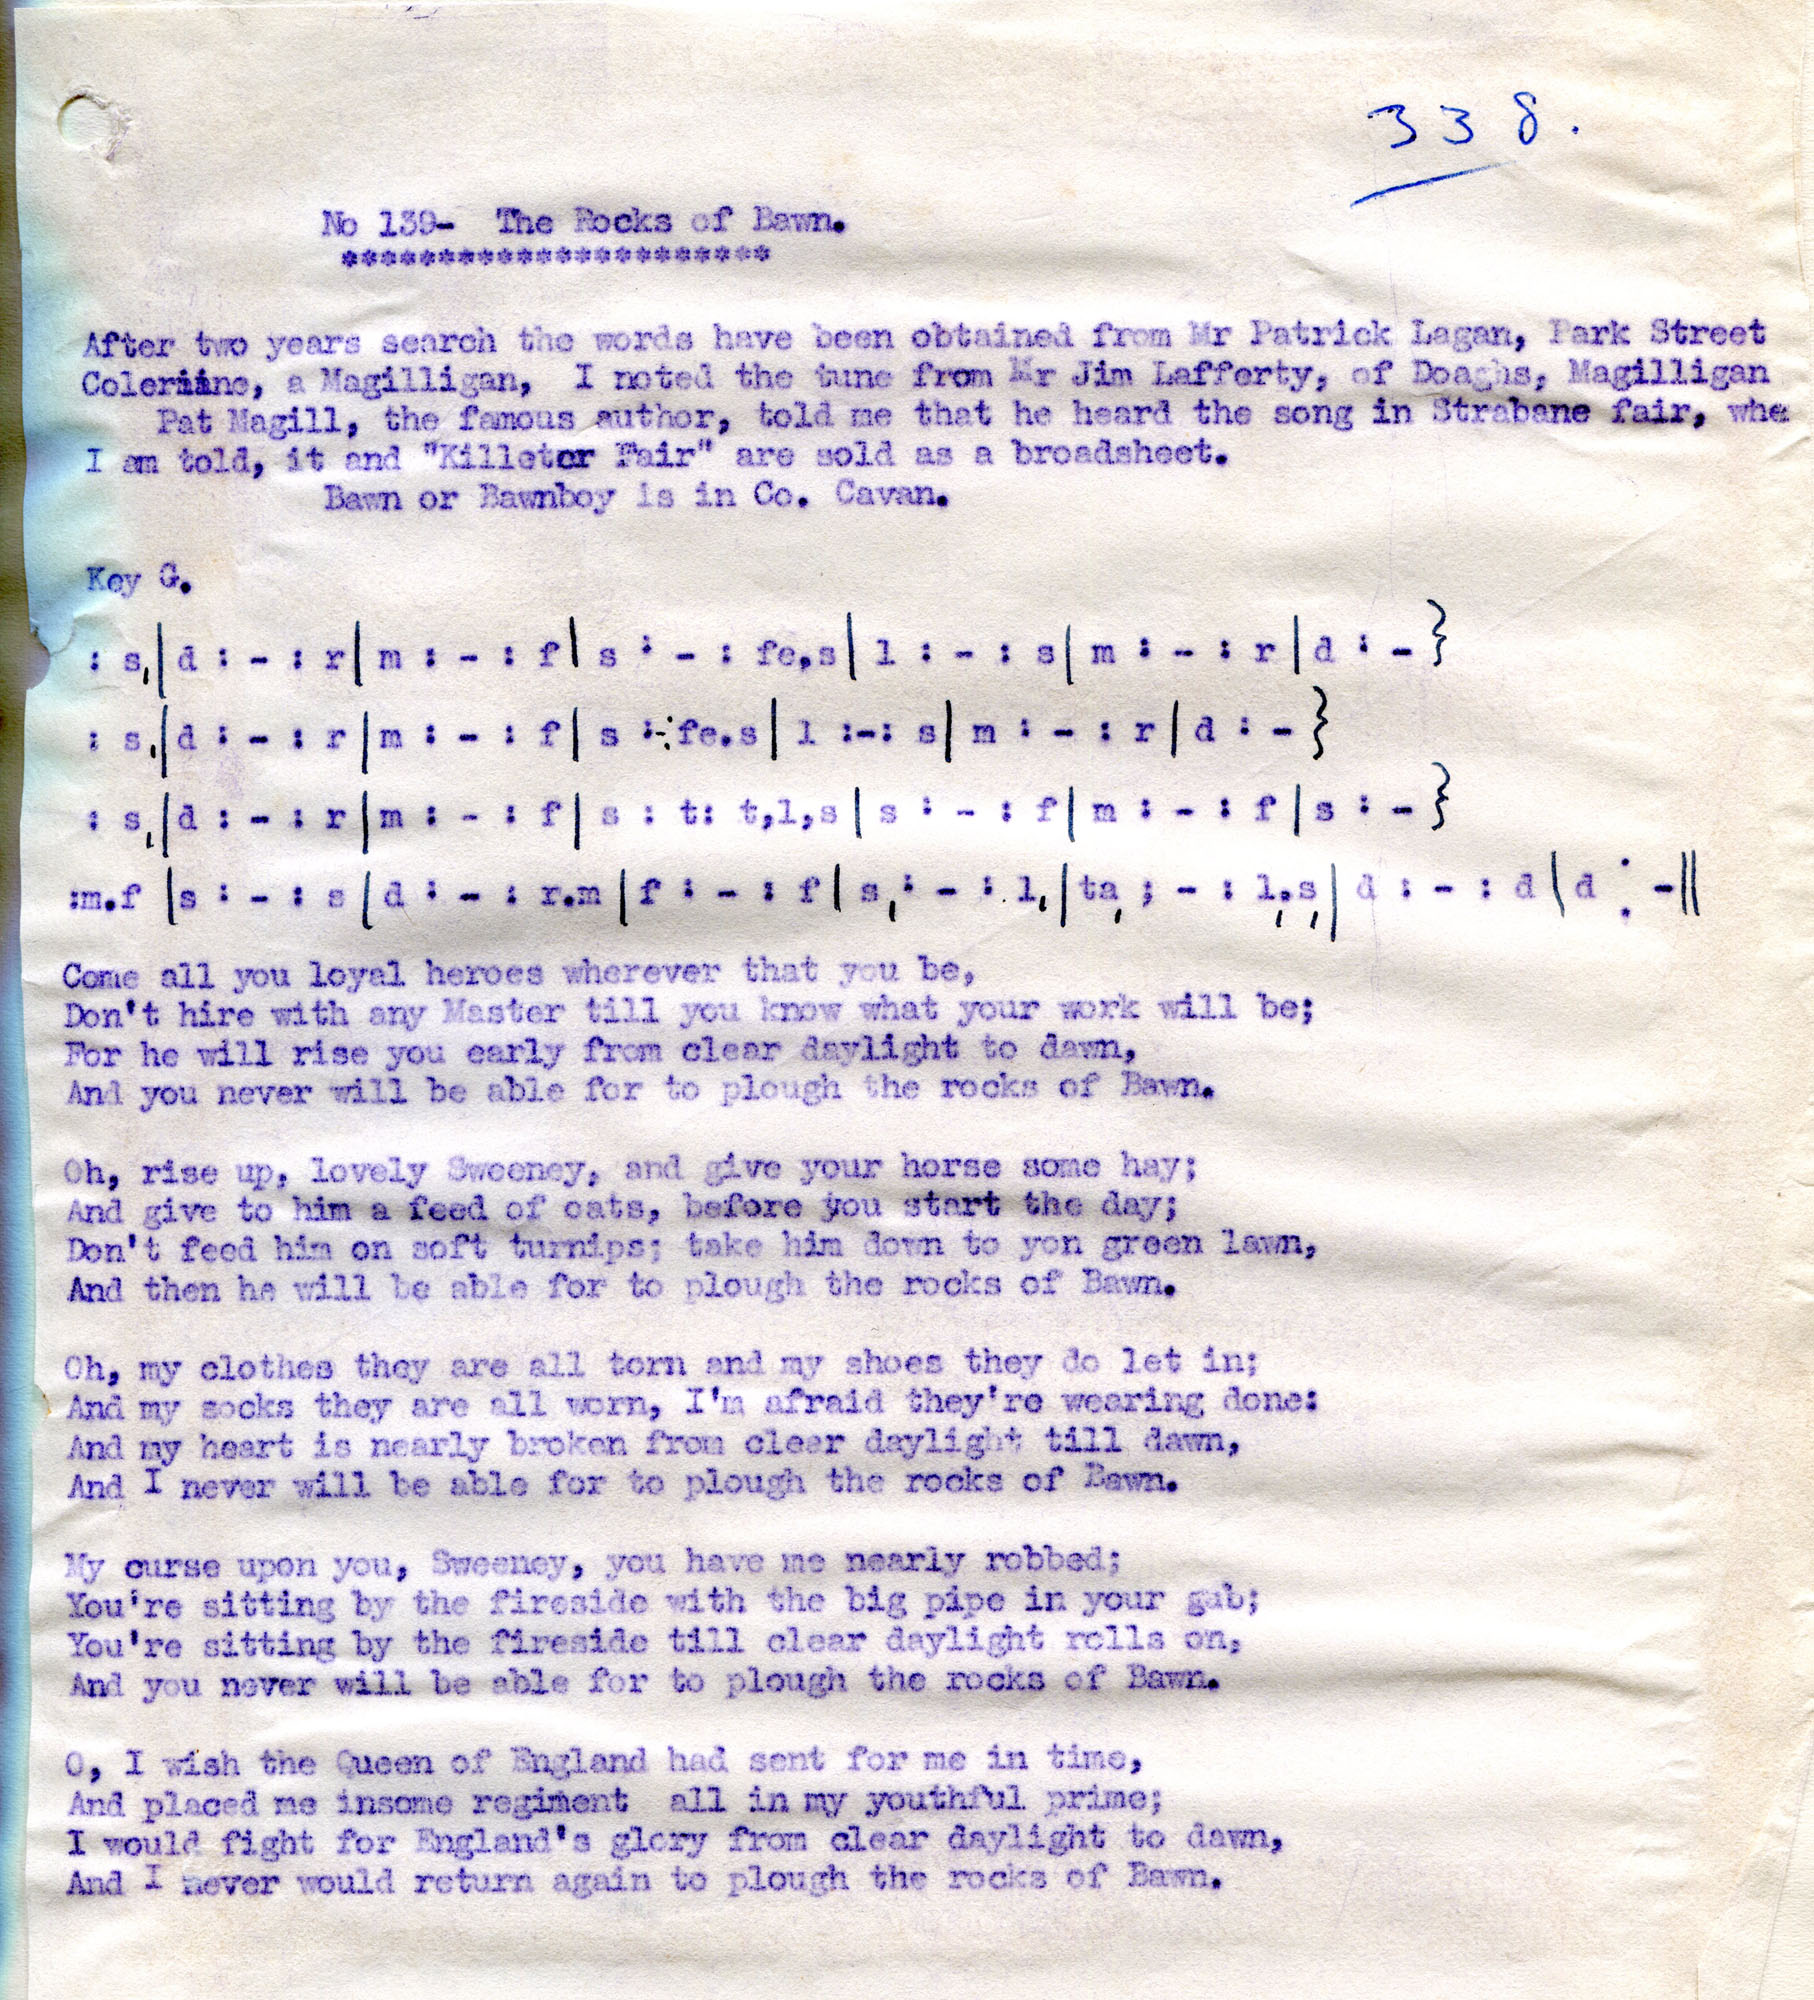 338.
No 139- The Rocks of Bawn.
**********************
After two years search the words have been obtained from Mr Patrick Lagan, Park Street
Coleriine, a Magilligan, I noted the tune from Mr Jim Lafferty, of Doaghs, Magilligan
Pat Magill, the famous author, told me that he heard the song in Strabane fair, whe
I am told, it and "Killeter Fair" are sold as a broadsheet.
Bawn or Bawnboy is in Co. Cavan.
Key G.
: s,|d : - : r|m : - : f|s : - : fe,s|l : - : s|m : - : r|d : -}
: s,|d : - : r|m : - : f|s :-: fe.s|l :-: s|m : - : r|d : -}
: s,|d : - : r|m : - : f|s : t: t,l,s|s : - : f|m : - : f|s : -}
:m.f |s : - : s|d : - : r.m|f : - : f|s, : - : l,|ta, ; - : l,.s,|d : - : d|d : -||
Come all you loyal heroes wherever that you be,
Don't hire with any Master till you know what your work will be;
For he will rise you early from clear daylight to dawn,
And you never will be able for to plough the rocks of Bawn.
Oh, rise up, lovely Sweeney, and give your horse some hay;
And give to him a feed of oats, before you start the day;
Don't feed him on soft turnips; take him down to yon green lawn,
And then he will be able for to plough the rocks of Bawn.
Oh, my clothes they are all torn and my shoes they do let in;
And my socks they are all worn, I'm afraid they're wearing done:
And my heart is nearly broken from clear daylight till dawn,
And I never will be able for to plough the rocks of Bawn.
My curse upon you, Sweeney, you have me nearly robbed;
You're sitting by the fireside with the big pipe in your gab;
You're sitting by the fireside till clear daylight rolls on,
And you never will be able for to plough the rocks of Bawn.
O, I wish the Queen of England had sent for me in time,
And placed me insome regiment all in my youthful prime;
I would fight for England's glory from clear daylight to dawn,
And I never would return again to plough the rocks of Bawn.